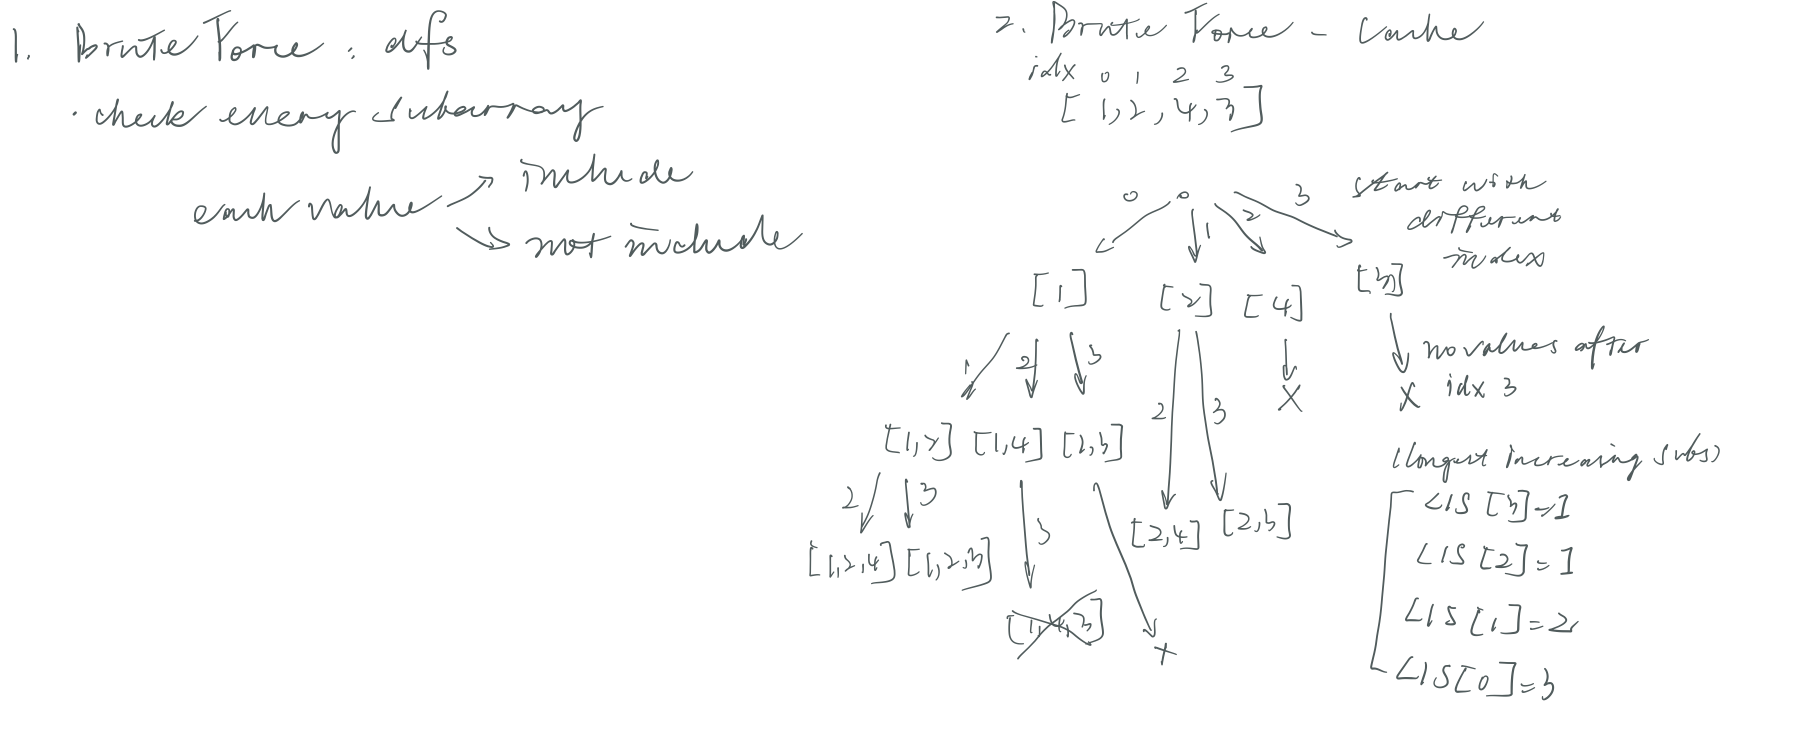 1. Brute Force : dfs
· check every subarray
each value
include
not include
2. Brute Force - Cache
idx 0 1 2 3
[ 1, 2, 4, 3 ]
0 1 2 3
start with
different
index
[1] [2] [4] [3]
1 2 3 2 3 X
no values after
X idx 3
[1,2] [1,4] [1,3]
2 3 3
[2,4] [2,3]
[1,2,4] [1,2,3]
[1,4,3]
X
(longest increasing subs)
LIS [3]=1
LIS [2]=1
LIS [1]=2
LIS [0]=3